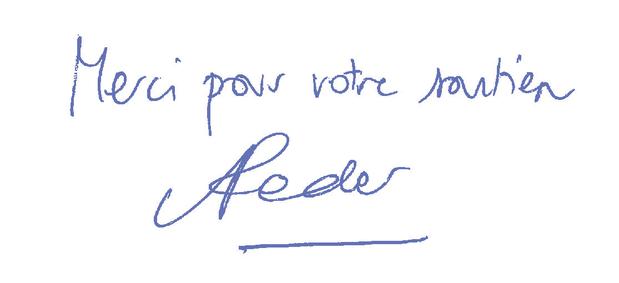 Merci pour votre soutien